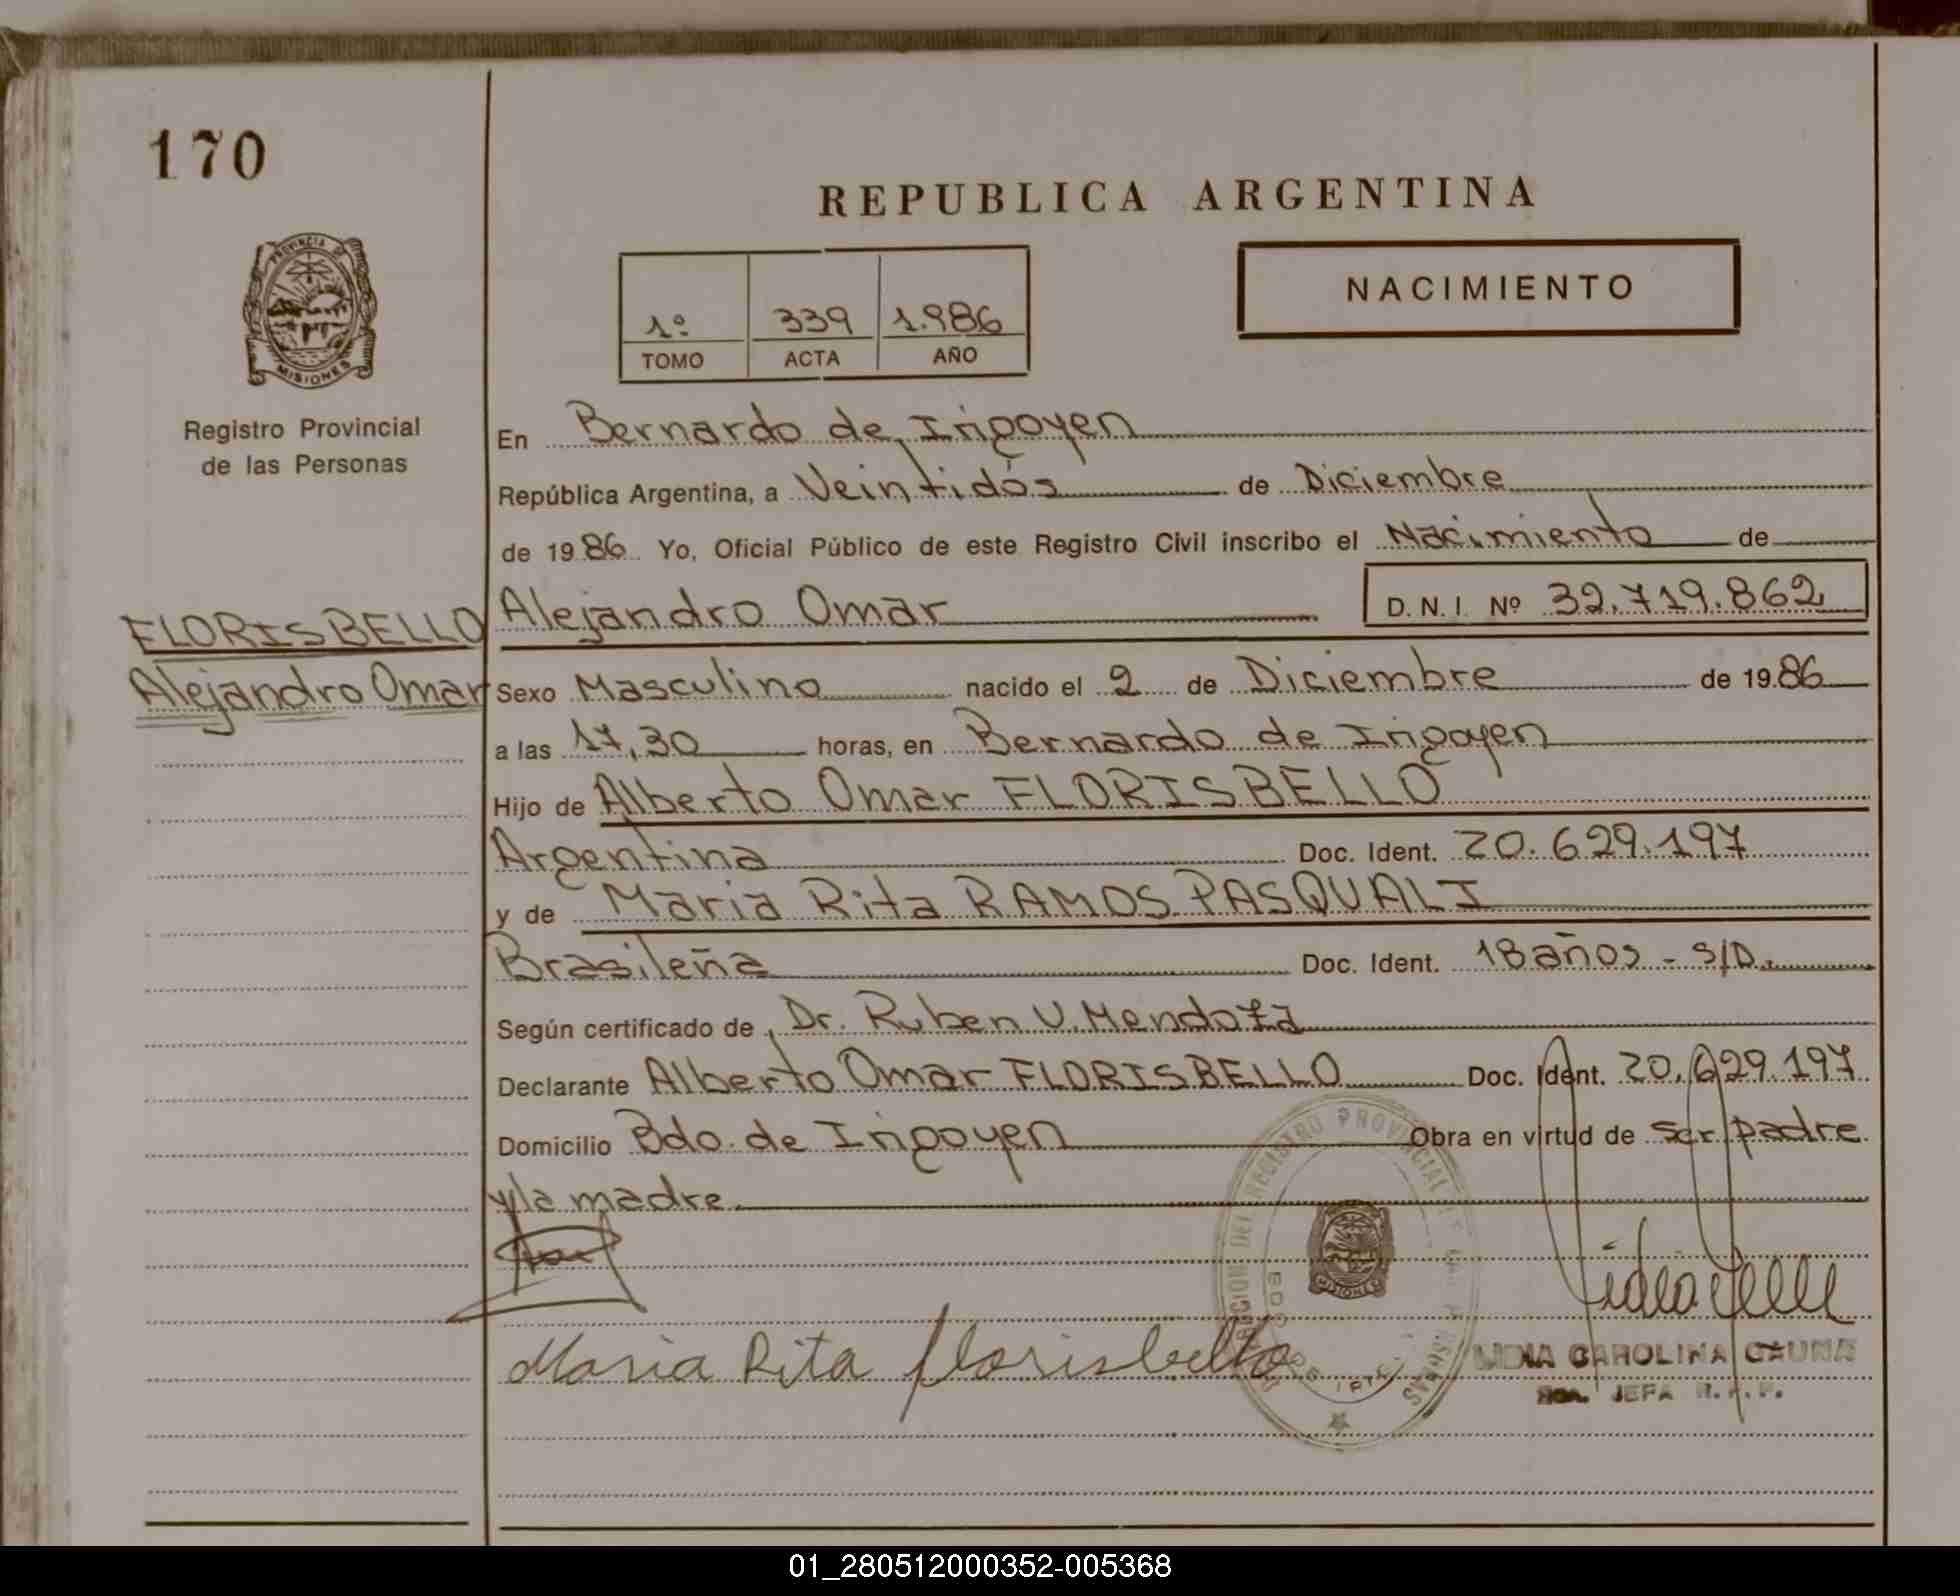 170
REPUBLICA ARGENTINA
PROVINCIA DE
MISIONES
NACIMIENTO
1º 339 1.986
TOMO ACTA AÑO
Registro Provincial
de las Personas
En Bernardo de Irigoyen
República Argentina, a Veintidós de Diciembre
de 1986 Yo, Oficial Público de este Registro Civil inscribo el Nacimiento de
FLORISBELLO
Alejandro Omar
Alejandro Omar D.N.I. Nº 32.719.862
Sexo Masculino nacido el 2 de Diciembre de 1986
a las 17,30 horas, en Bernardo de Irigoyen
Hijo de Alberto Omar FLORISBELLO
Argentina Doc. Ident. 20.629.197
y de Maria Rita RAMOS PASQUALI
Brasileña Doc. Ident. 18 años - S/D.
Según certificado de Dr. Ruben V. Mendoza
Declarante Alberto Omar FLORISBELLO Doc. Ident. 20.629.197
Domicilio Bdo. de Irigoyen Obra en virtud de ser padre
y la madre.
Maria Rita Florisbello
LIDIA CAROLINA
JEFA
MISIONES
01_280512000352-005368